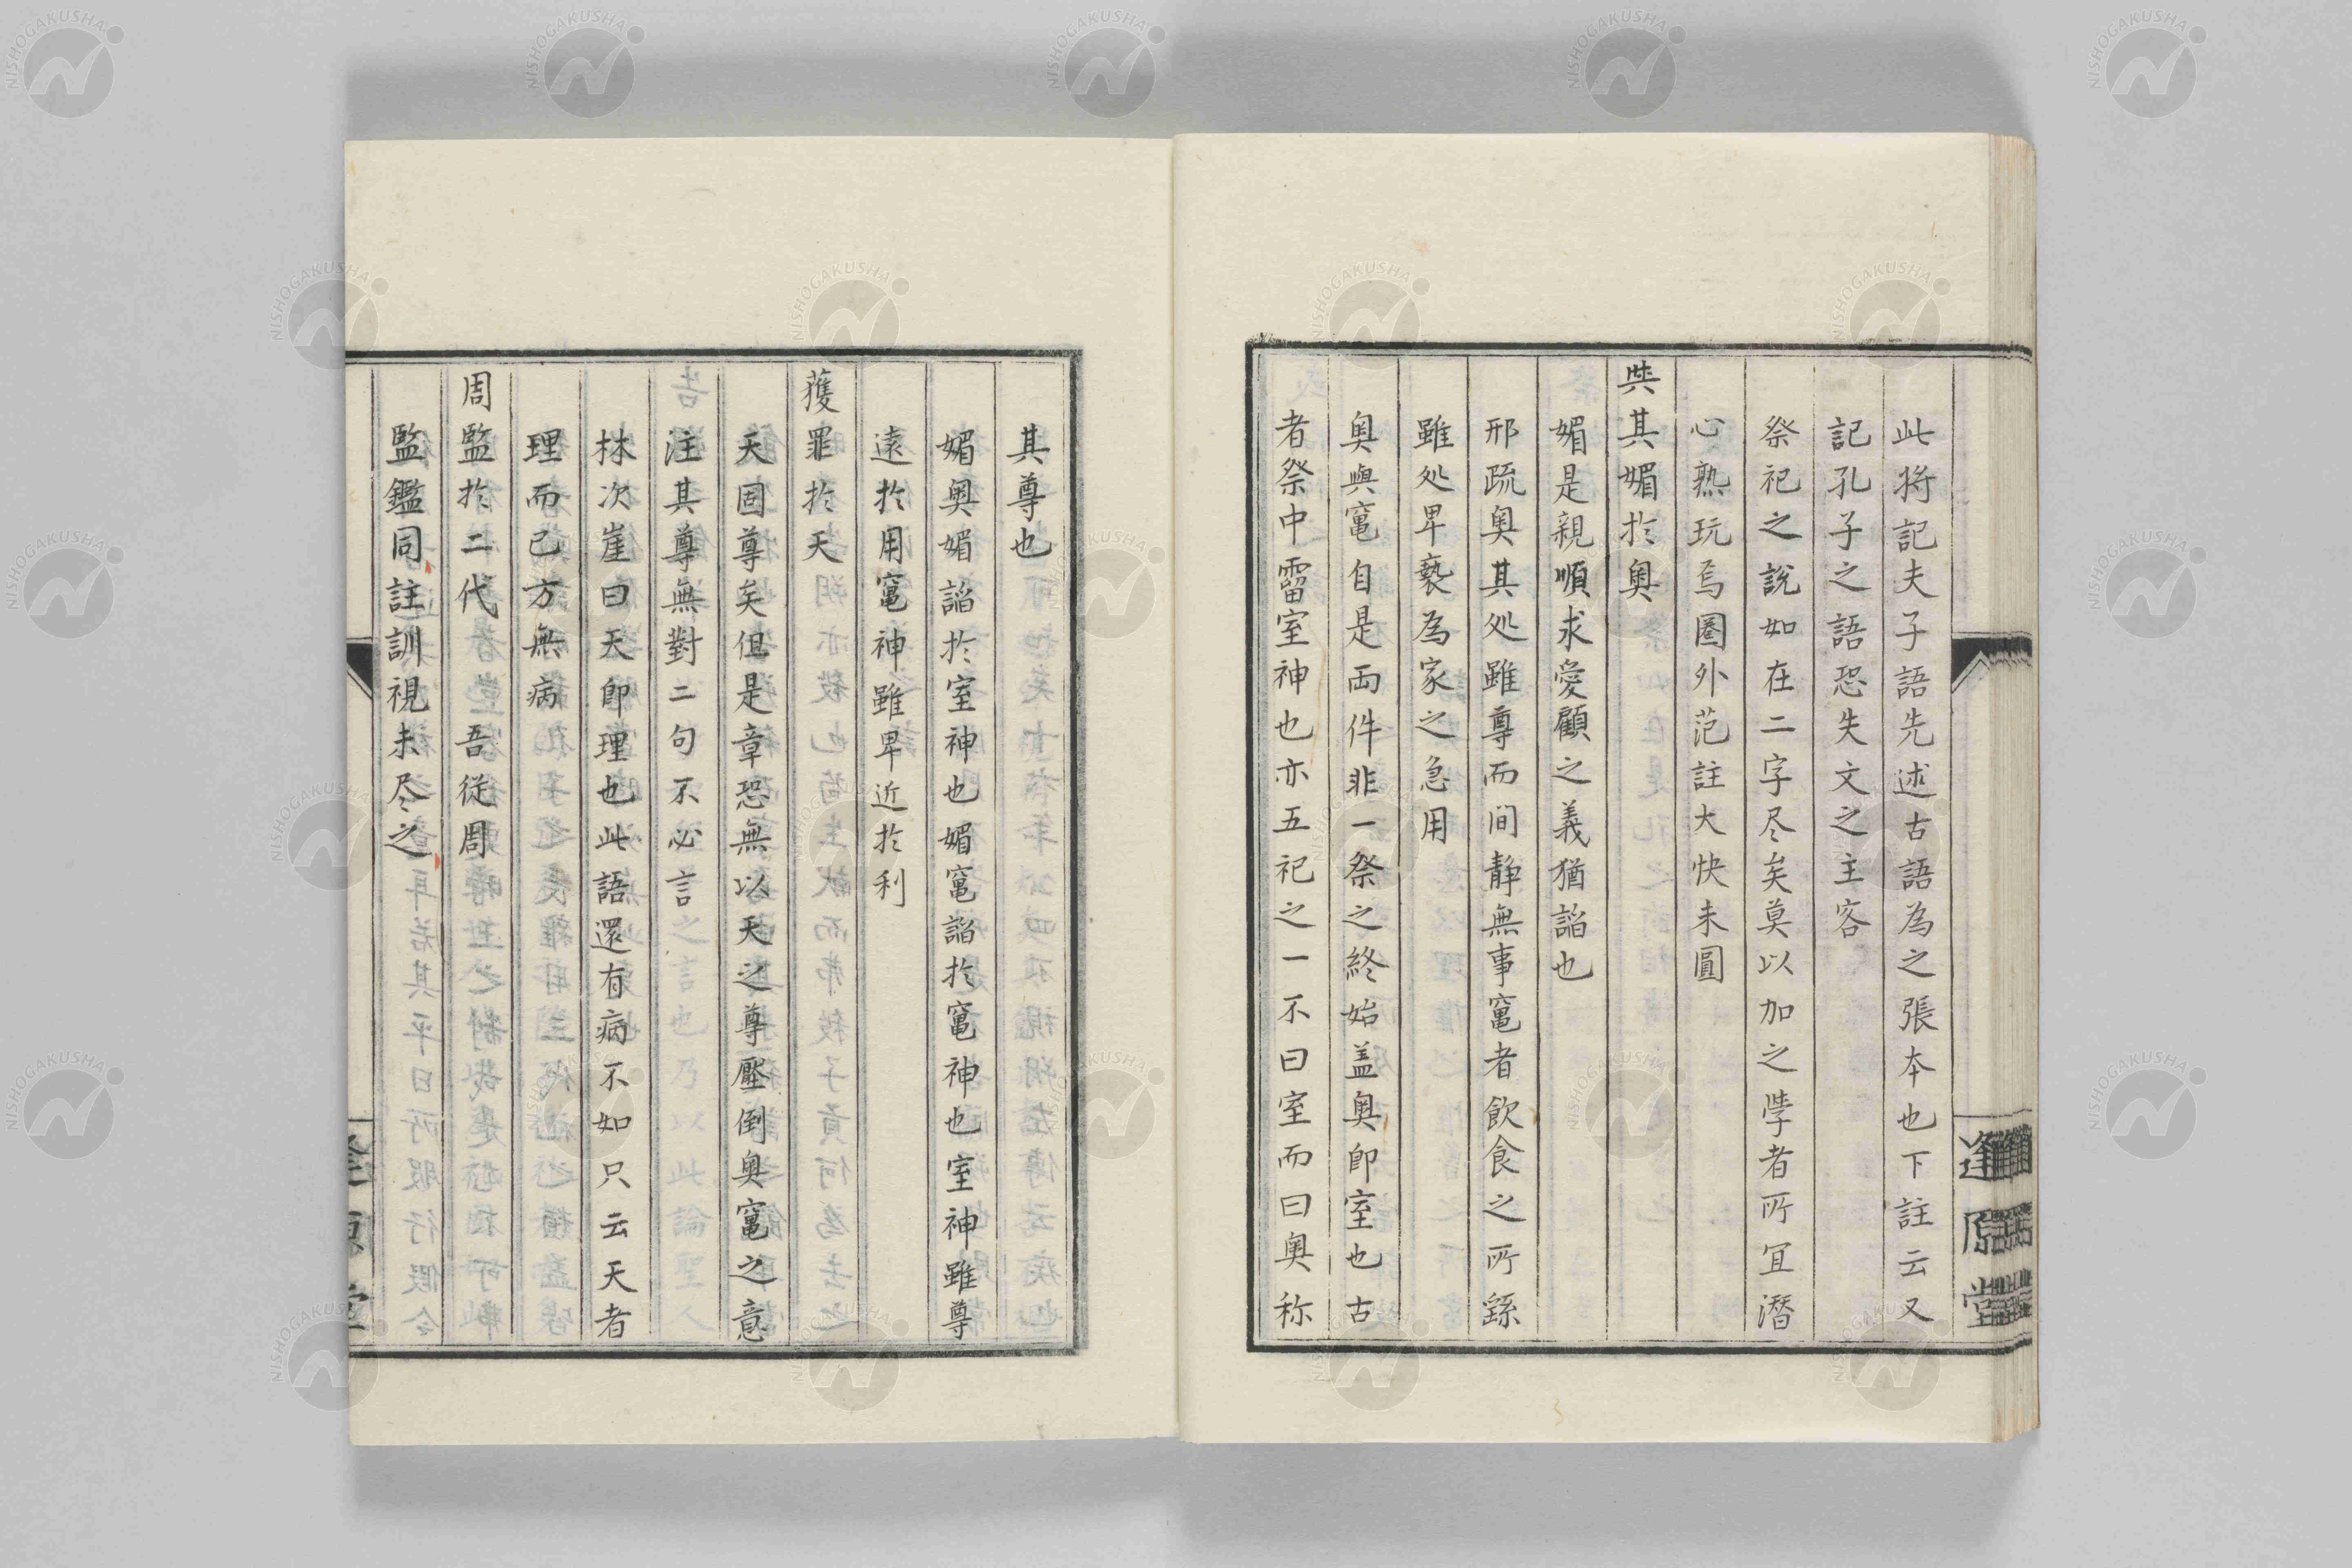 此將記夫子語先述古語為之張本也下註云又
記孔子之語恐失文之主客
祭祀之說如在二字尽矣莫以加之斈者所宜潛
心熟玩焉圏外范註大快未圓
其媚於奧
媚是親順求愛顧之義猶諂也
邢疏奧其処雖尊而间静無事竈者飲食之所繇
雖処卑褻為家之急用
奧與竈自是両件非一祭之終始盖奧即室也古
者祭中霤室神也亦五祀之一不曰室而曰奧称
其尊也
媚奧媚諂於室神也媚竈諂於竈神也室神雖尊
遠於用竈神雖卑近於利
獲罪於天
天固尊矣但是章恐無以天之尊壓倒奧竈之意
注其尊無對二句不必言
林次崖曰天即理也此語還有病不如只云天者
理而已方無病
周監於二代 吾従周
監鑑同註訓視未尽之
逢原堂